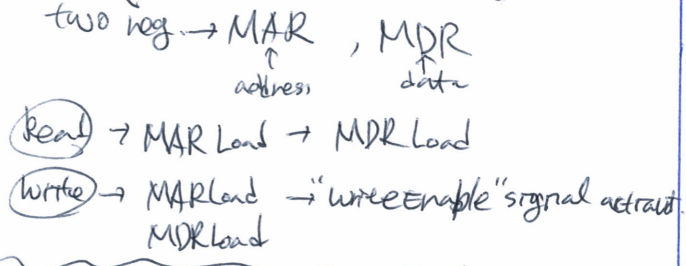 two reg. → MAR , MDR
↑ ↑
address data
Read → MAR Load → MDR Load
Write → MAR Load → "WriteEnable" signal
MDR Load